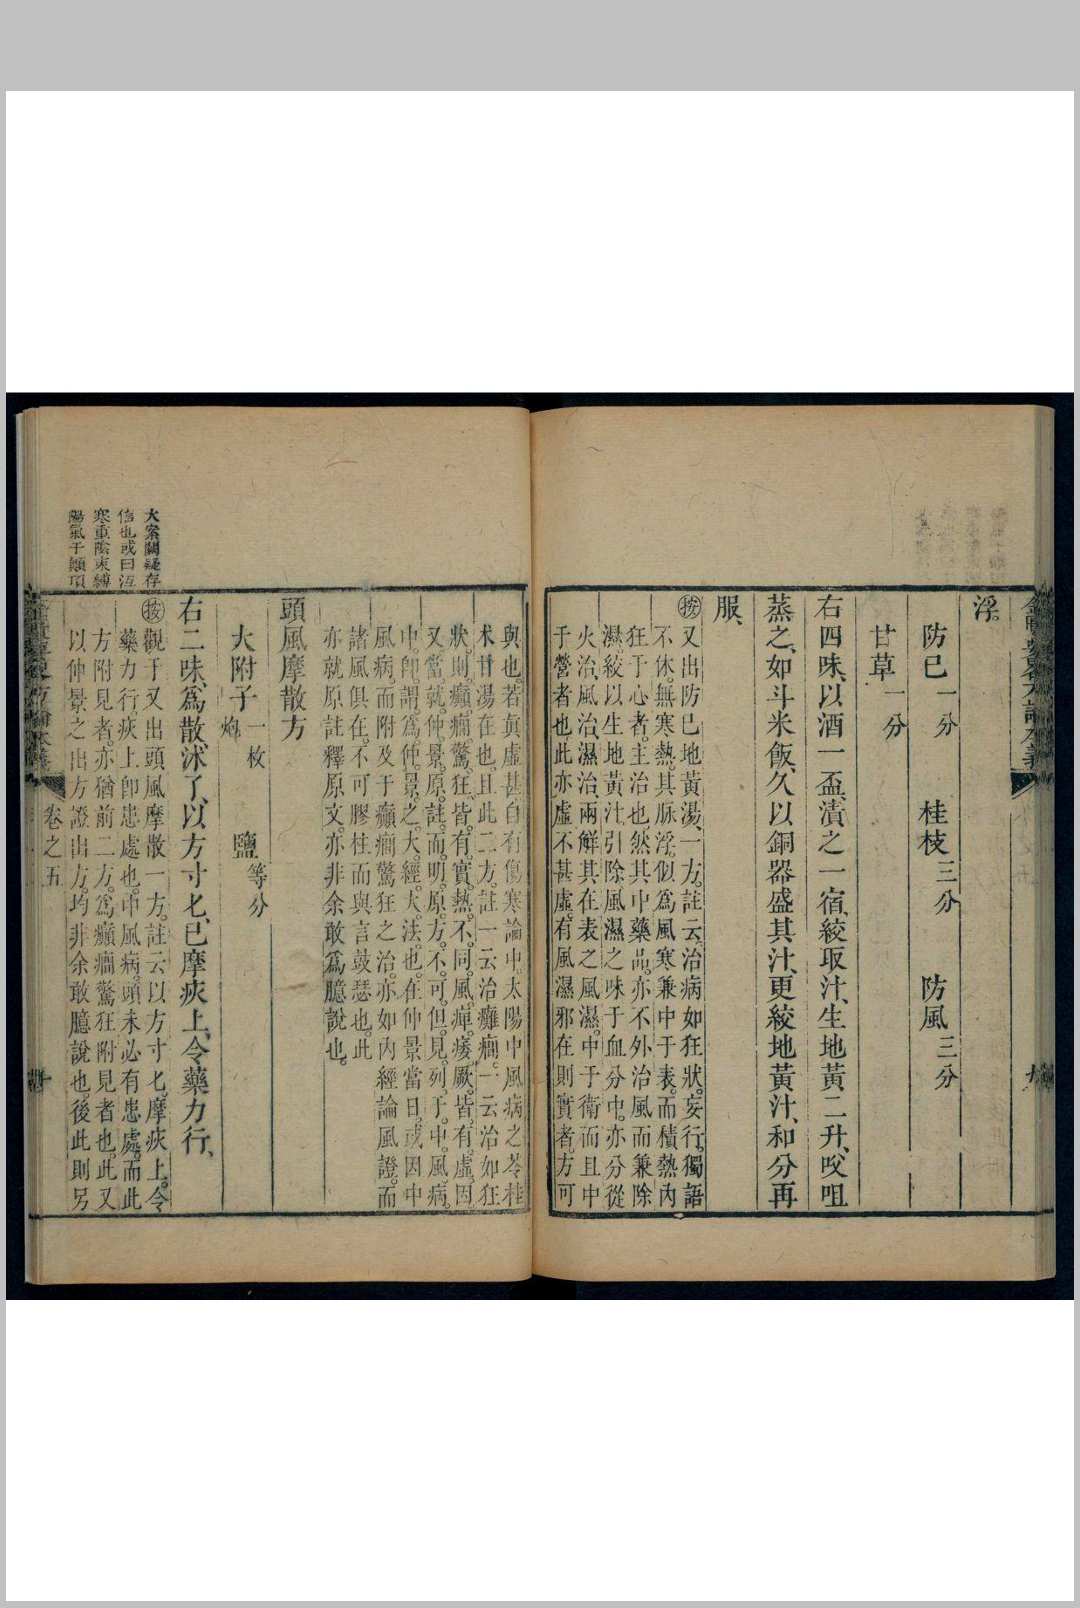 浮。
防巳一分 桂枝三分 防風三分
甘草一分
右四味、以酒一盃、漬之一宿、絞取汁、生地黃二升、㕮咀
蒸之、如斗米飯、久以銅器盛其汁、更絞地黃汁、和分再
服、
按又出防巳地黃湯、一方。註云、治病如狂狀。妄行。獨語
不休。無寒熱。其脉浮。似爲風寒兼中于表。而積熱內
狂于心者。主治也。然其中藥品。亦不外治風而兼除
濕。絞以生地黃汁。引除風濕之味于血分中。亦分從
火治、風治、濕治、兩觧其在表之風濕。中于衛而且中
于營者也。此亦虛不甚虛。有風濕邪在則實者。方可
與也。若眞虛甚自有傷寒論中。太陽中風病之苓桂
术甘湯在也。且此二方。註一云治癱癎。一云治如狂
狀。則。癲。癎。驚。狂。皆。有。實。熱。不。同。風。痺。痿。厥。皆。有。虛。因。
又。當。就。仲。景。原。註。而。明。原。方。不。可。但。見。列。于。中。風。病。
中。卽。謂。爲。仲。景。之。大。經。大。法。也。在仲景當日。或因中
風病。而附及于癲癎驚狂之治。亦如內經論風證。而
諸風俱在。不可膠柱而與言鼓瑟也。此
亦就原註釋原文。亦非余敢爲臆說也。
頭風摩散方
大附子一枚炮 鹽等分
右二味、爲散、沭了、以方寸匕、巳摩疢上、令藥力行、
按觀于又出頭風摩散一方。註云以方寸匕。摩疢上。令
藥力行。疢上卽患處也。中風病。頭未必有患處。而此
方附見者。亦猶前二方。爲癲癎驚狂附見者也。此又
以仲景之出方證出方。均非余敢臆說也。後此則另
卷之五
大案闕疑存
信也或曰沍
寒重陰束縛
陽氣于顚頂